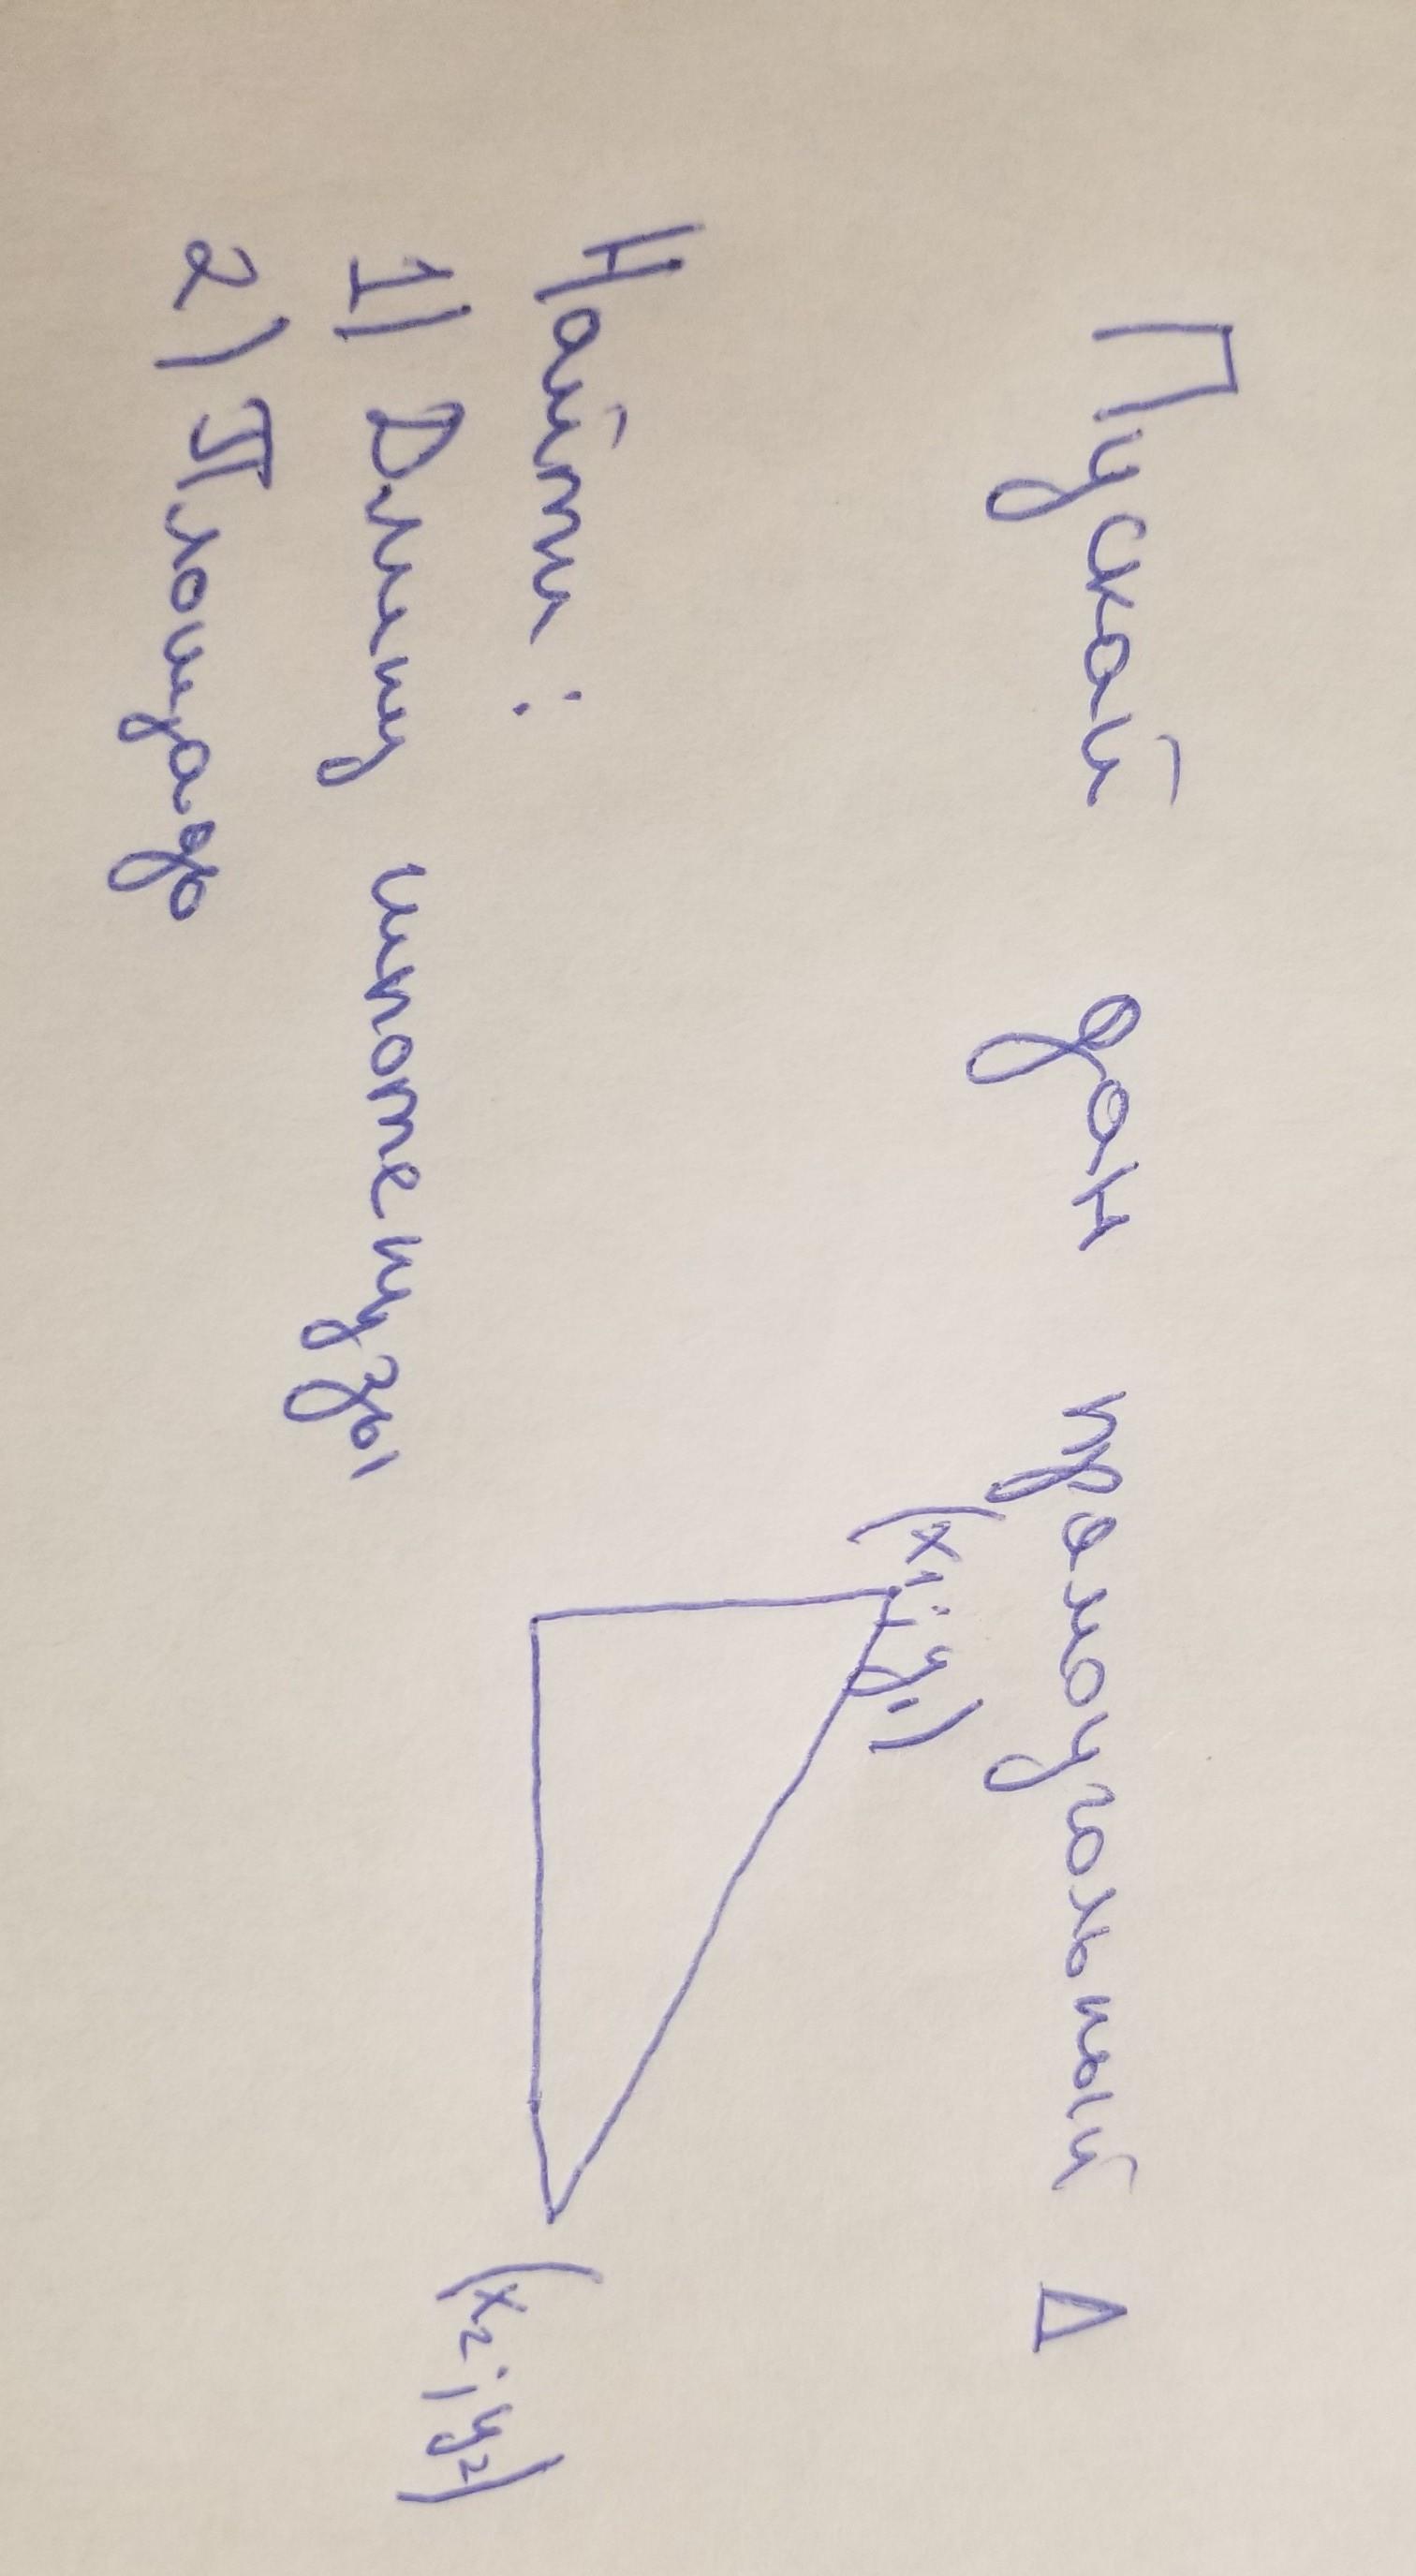 Пускай дан прямоугольный Δ
(x₁; y₁)
(x₂; y₂)
Найти:
1) Длину гипотенузы
2) Площадь